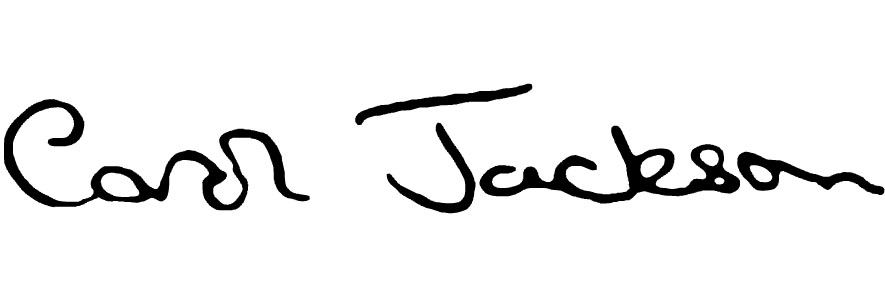 Carol Jackson